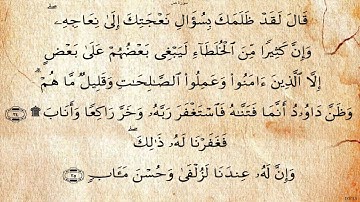 قَالَ لَقَدۡ ظَلَمَكَ بِسُؤَالِ نَعۡجَتِكَ إِلَىٰ نِعَاجِهِۦۖ
وَإِنَّ كَثِيرٗا مِّنَ ٱلۡخُلَطَآءِ لَيَبۡغِي بَعۡضُهُمۡ عَلَىٰ بَعۡضٍ
إِلَّا ٱلَّذِينَ ءَامَنُواْ وَعَمِلُواْ ٱلصَّٰلِحَٰتِ وَقَلِيلٞ مَّا هُمۡۗ
وَظَنَّ دَاوُۥدُ أَنَّمَا فَتَنَّٰهُ فَٱسۡتَغۡفَرَ رَبَّهُۥ وَخَرَّۤ رَاكِعٗاۤ وَأَنَابَ۩ ٢٤
فَغَفَرۡنَا لَهُۥ ذَٰلِكَۖ
وَإِنَّ لَهُۥ عِندَنَا لَزُلۡفَىٰ وَحُسۡنَ مَـَٔابٖ ٢٥